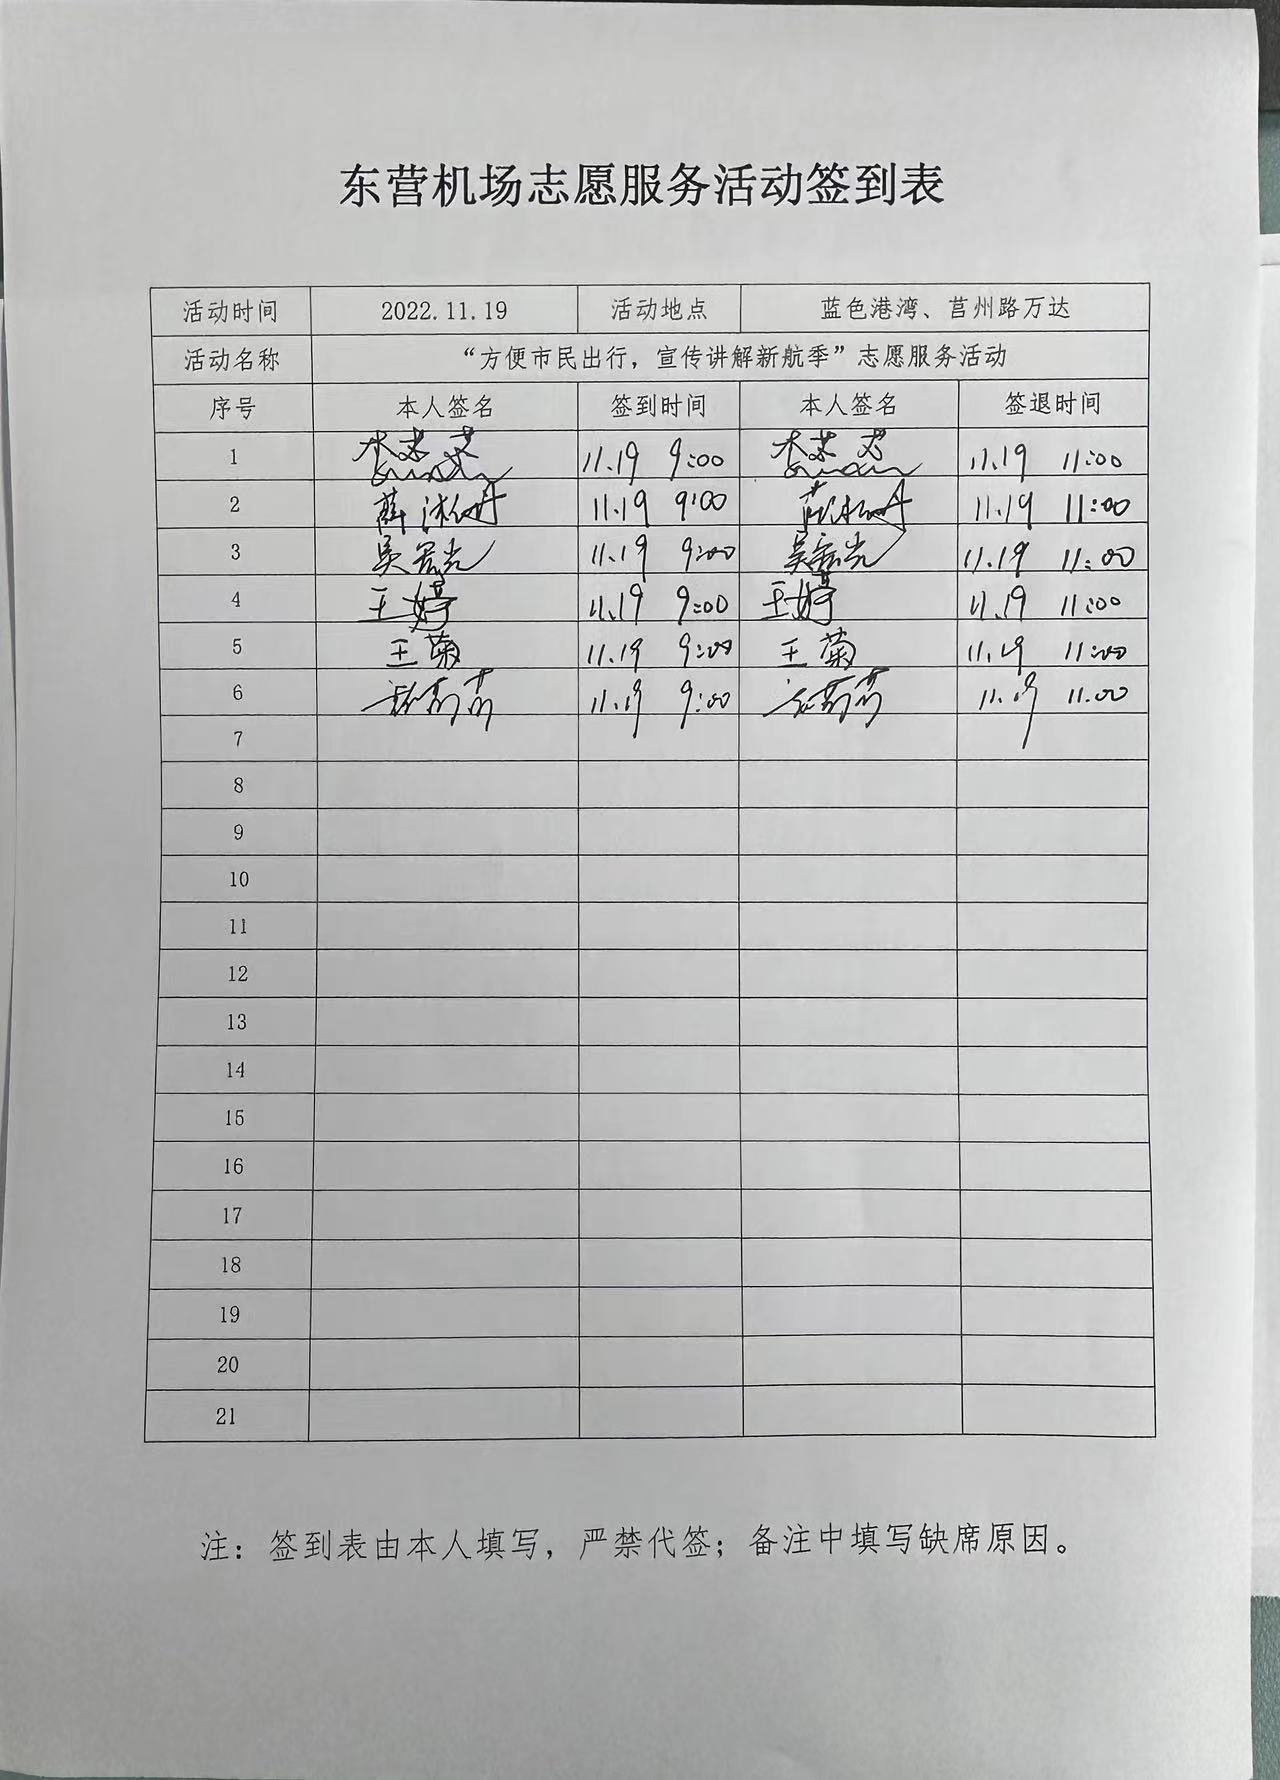 东营机场志愿服务活动签到表
活动时间 2022.11.19 活动地点 蓝色港湾、莒州路万达
活动名称 “方便市民出行，宣传讲解新航季”志愿服务活动
序号 本人签名 签到时间 本人签名 签退时间
1 11.19 9:00 11.19 11:00
2 11.19 9:00 11.19 11:00
3 11.19 9:00 11.19 11:00
4 王婷 11.19 9:00 王婷 11.19 11:00
5 王菊 11.19 9:00 王菊 11.19 11:00
6 11.19 9:00 11.19 11.00
7
8
9
10
11
12
13
14
15
16
17
18
19
20
21
注：签到表由本人填写，严禁代签；备注中填写缺席原因。